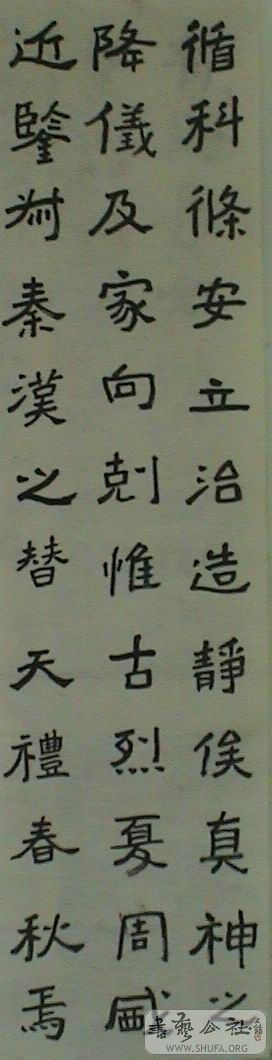 循科條安立治造靜俟真神之
降儀及家向剋惟古烈夏周威
近鑒於秦漢之替天禮春秋焉
書藝公社
WWW.SHUFA.ORG